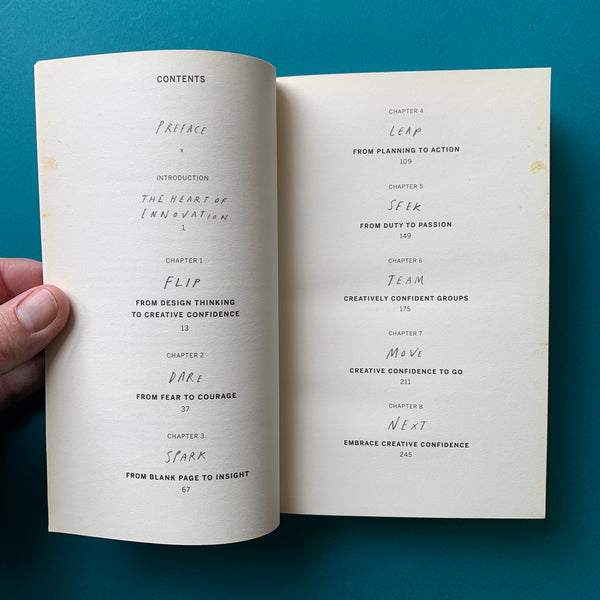 CONTENTS
PREFACE
x
INTRODUCTION
THE HEART OF
INNOVATION
1
CHAPTER 1
FLIP
FROM DESIGN THINKING
TO CREATIVE CONFIDENCE
13
CHAPTER 2
DARE
FROM FEAR TO COURAGE
37
CHAPTER 3
SPARK
FROM BLANK PAGE TO INSIGHT
67
CHAPTER 4
LEAP
FROM PLANNING TO ACTION
109
CHAPTER 5
SEEK
FROM DUTY TO PASSION
149
CHAPTER 6
TEAM
CREATIVELY CONFIDENT GROUPS
175
CHAPTER 7
MOVE
CREATIVE CONFIDENCE TO GO
211
CHAPTER 8
NEXT
EMBRACE CREATIVE CONFIDENCE
245